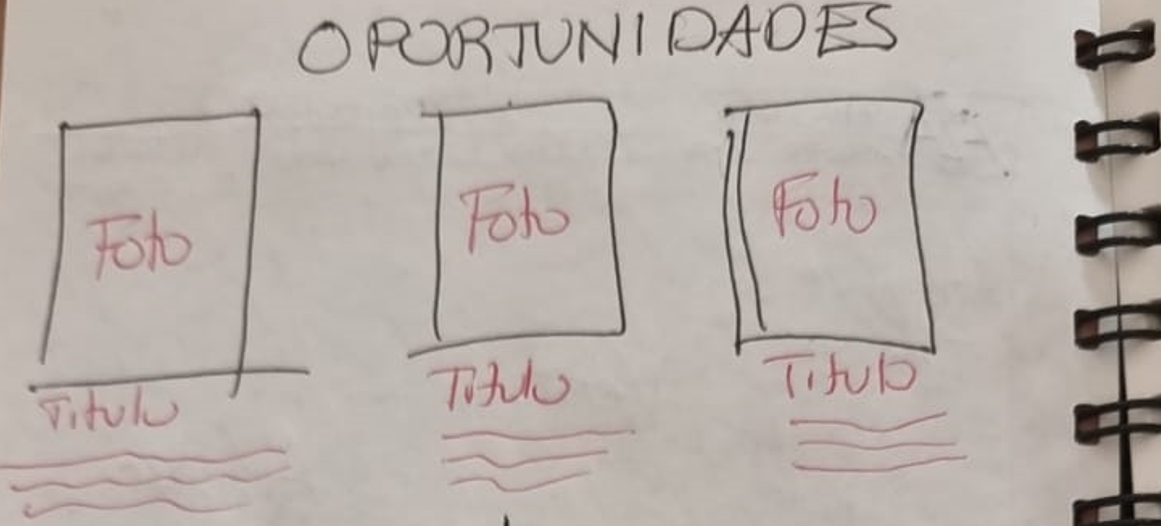 OPORTUNIDADES
Foto Foto Foto
Titulo Titulo Titulo